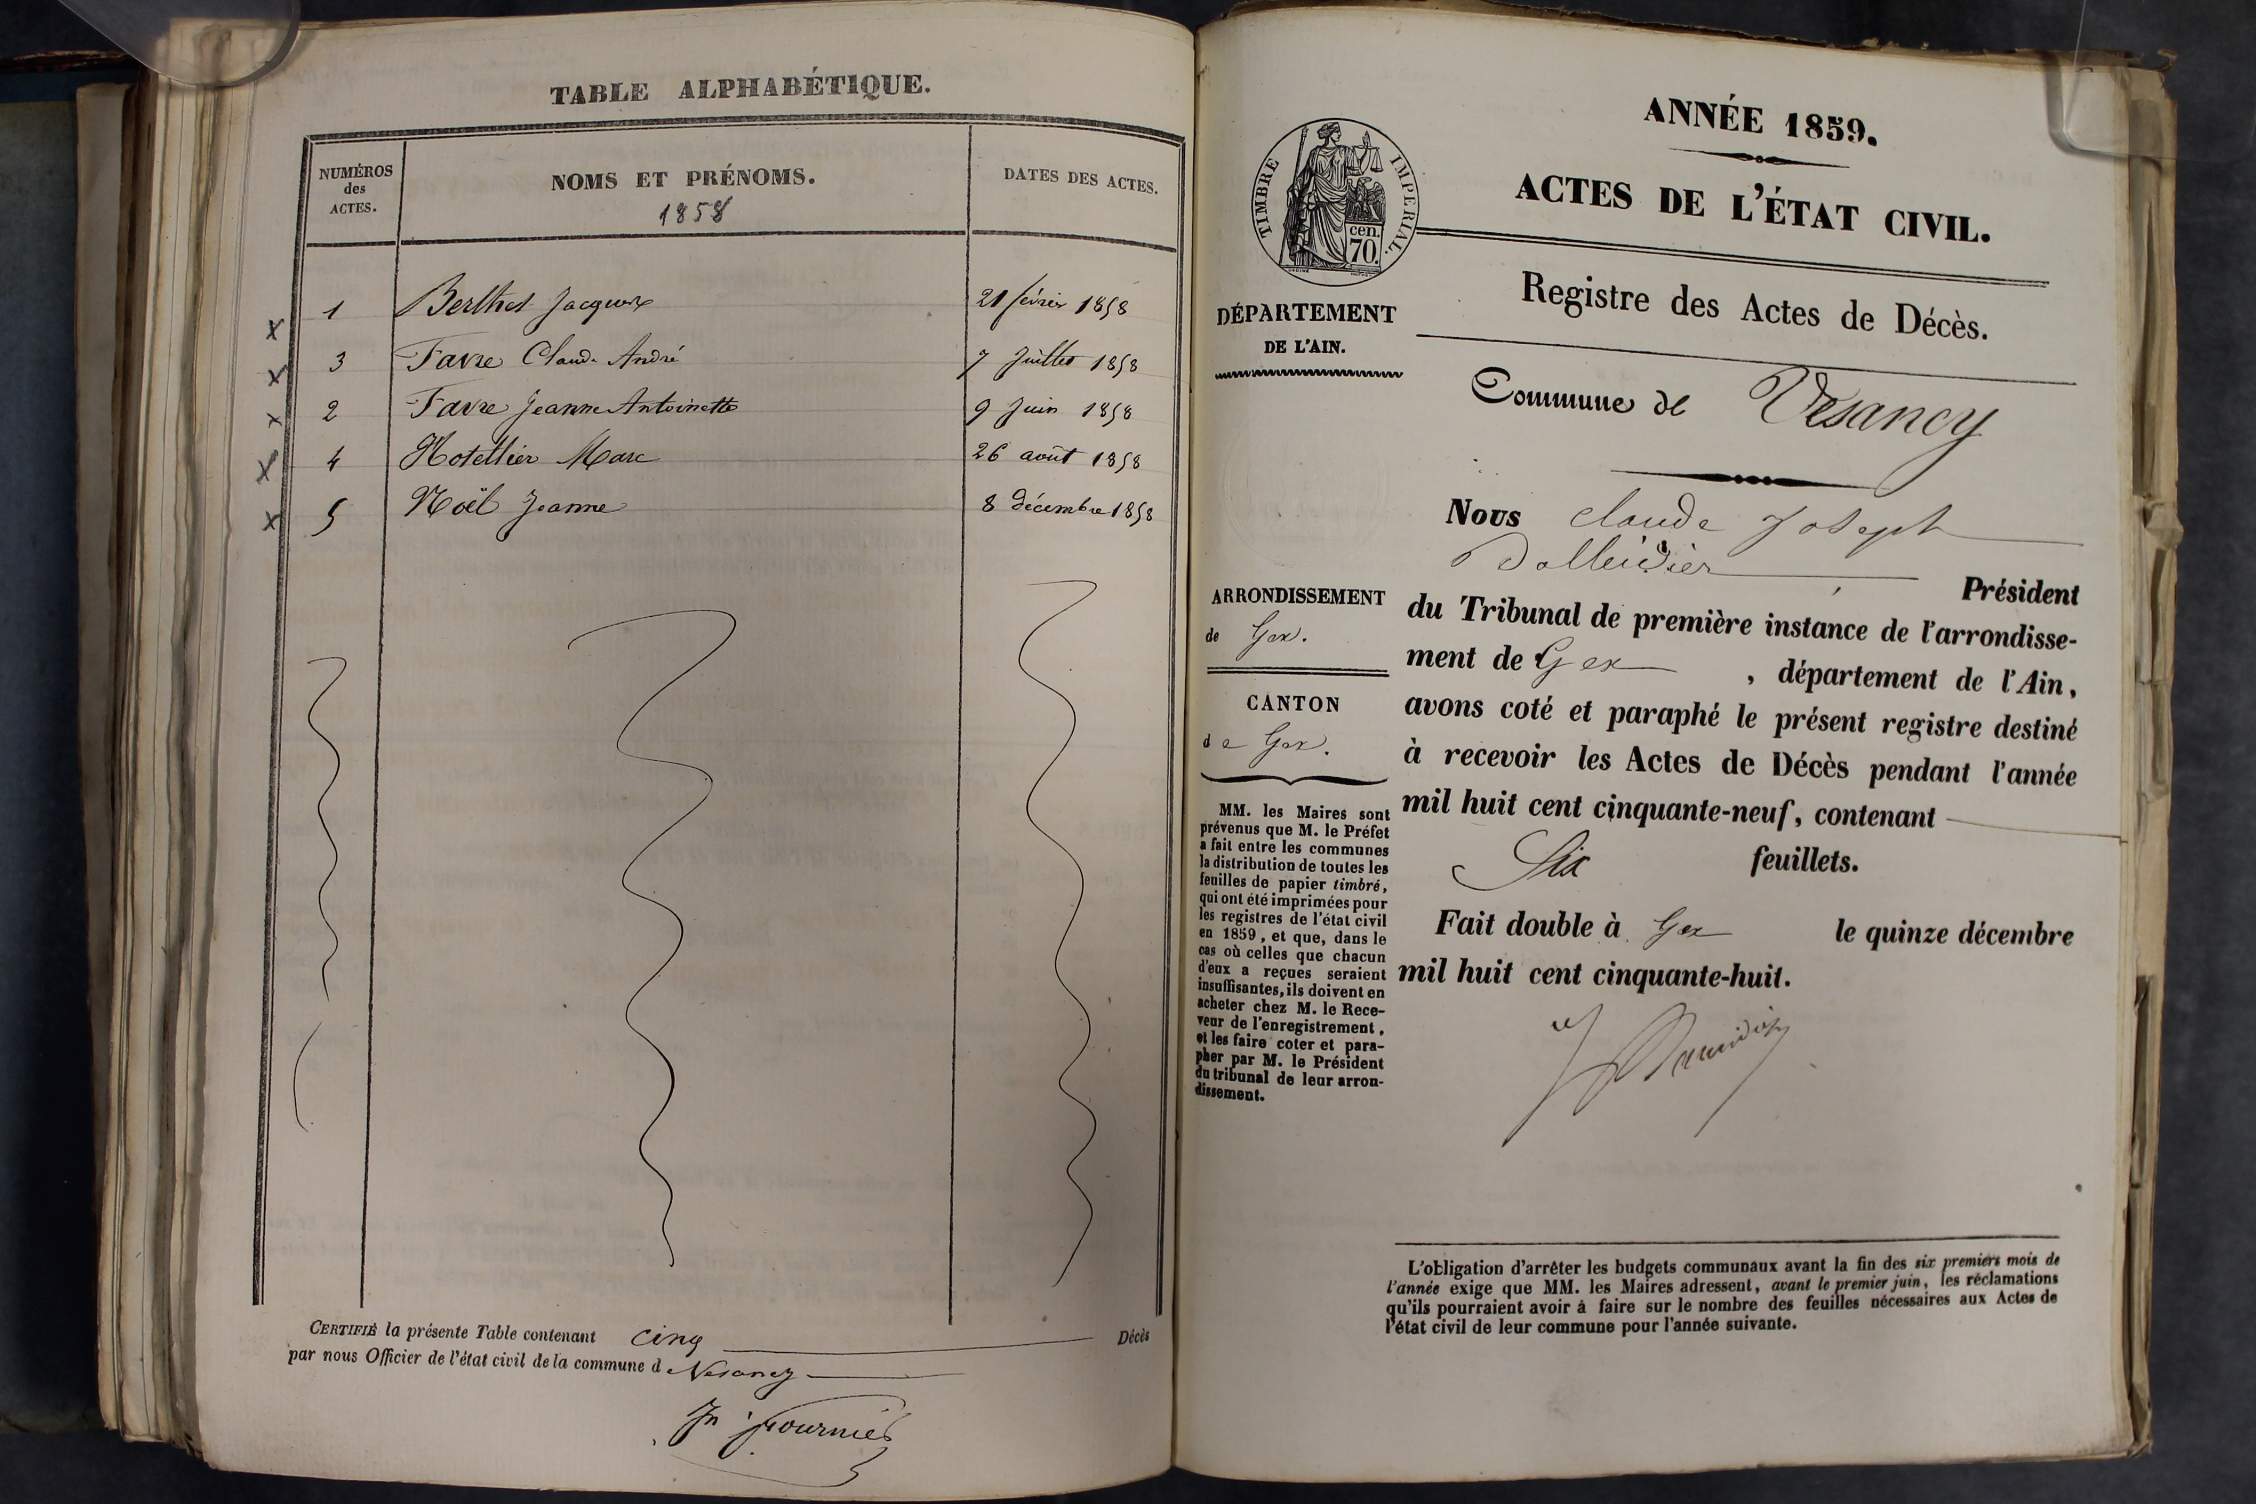 TABLE ALPHABÉTIQUE.
NUMÉROS
des
ACTES.
NOMS ET PRÉNOMS.
1858
DATES DES ACTES.
1 Berthet Jacques 21 février 1858
3 Favre Claude André 7 Juillet 1858
2 Favre Jeanne Antoinette 9 Juin 1858
4 Hotellier Marc 26 août 1858
5 Noël Jeanne 8 décembre 1858
CERTIFIÉ la présente Table contenant cinq Décès
par nous Officier de l'état civil de la commune d e Vesancy
Fournier
ANNÉE 1859.
ACTES DE L'ÉTAT CIVIL.
TIMBRE IMPERIAL.
cen.
70.
Registre des Actes de Décès.
DÉPARTEMENT
DE L'AIN.
Commune de Vesancy
Nous Claude Joseph
Président
du Tribunal de première instance de l'arrondisse-
ment de Gex , département de l'Ain,
avons coté et paraphé le présent registre destiné
à recevoir les Actes de Décès pendant l'année
mil huit cent cinquante-neuf, contenant
Six feuillets.
Fait double à Gex le quinze décembre
mil huit cent cinquante-huit.
ARRONDISSEMENT
de Gex.
CANTON
de Gex.
MM. les Maires sont
prévenus que M. le Préfet
a fait entre les communes
la distribution de toutes les
feuilles de papier timbré,
qui ont été imprimées pour
les registres de l'état civil
en 1859, et que, dans le
cas où celles que chacun
d'eux a reçues seraient
insuffisantes, ils doivent en
acheter chez M. le Rece-
veur de l'enregistrement,
et les faire coter et para-
pher par M. le Président
du tribunal de leur arron-
dissement.
L'obligation d'arrêter les budgets communaux avant la fin des six premiers mois de
l'année exige que MM. les Maires adressent, avant le premier juin, les réclamations
qu'ils pourraient avoir à faire sur le nombre des feuilles nécessaires aux Actes de
l'état civil de leur commune pour l'année suivante.